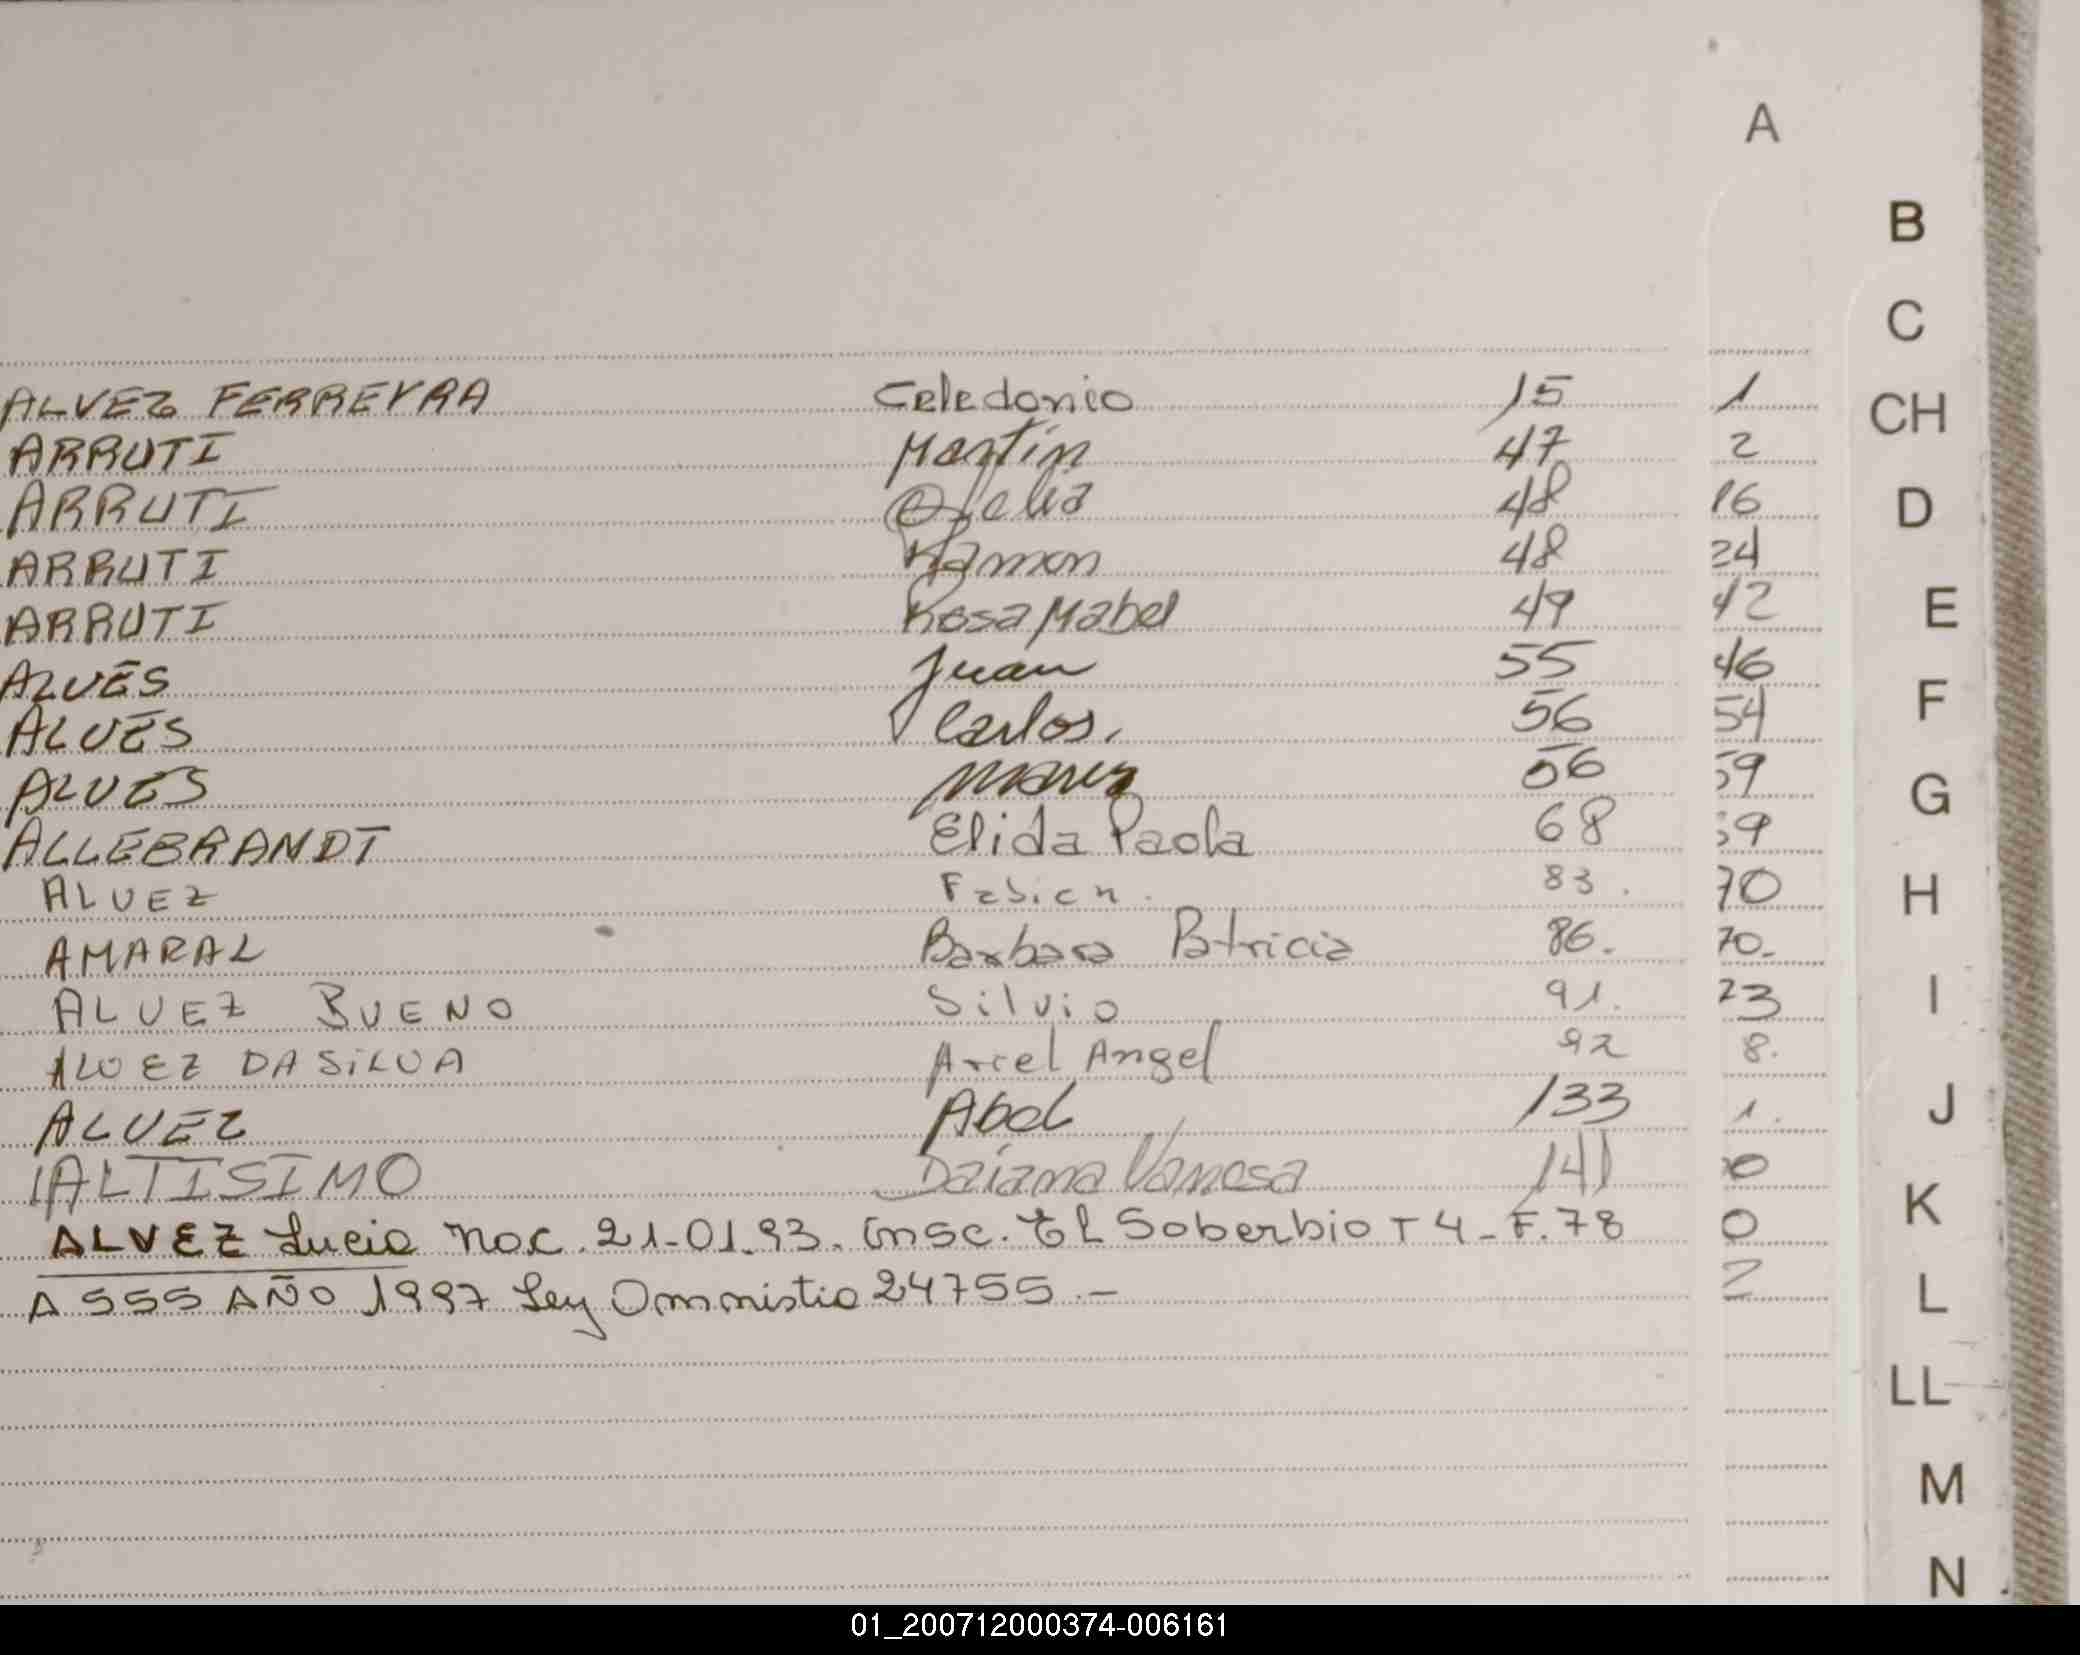 A
B
C
CH
D
E
F
G
H
I
J
K
L
LL
M
N
ALVEZ FERREYRA Celedonio 15 1
ARRUTI Martín 47 2
ARRUTI Ofelia 48 16
ARRUTI Ramon 48 24
ARRUTI Rosa Mabel 49 42
ALVES Juan 55 46
ALVES Carlos. 56 54
ALVES 56 59
ALLEBRANDT Elida Paola 68 39
ALVEZ Fabian. 83. 70
AMARAL Barbara Patricia 86. 70.
ALVEZ BUENO Silvio 91. 23
ALVEZ DA SILVA Ariel Angel 92 8.
ALVEZ Abel 133 1.
ALTISIMO Daiana Vanesa 141 0
ALVEZ Lucia Nac. 21-01.93. Insc. El Soberbio T 4-F.78 0
A 555 AÑO 1997 Ley Omnistia 24755.- 2
01_200712000374-006161